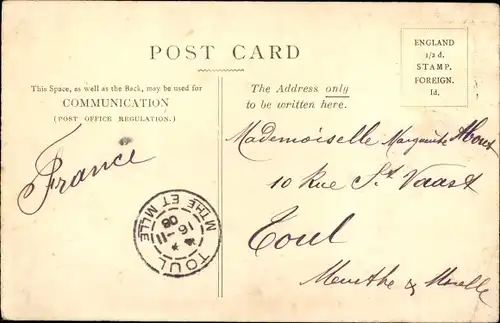 POST CARD
This Space, as well as the Back, may be used for
COMMUNICATION
(POST OFFICE REGULATION.)
The Address only
to be written here.
ENGLAND
1/2 d.
STAMP.
FOREIGN.
1d.
France
Mademoiselle Marguerite About
10 Rue St. Vaast
Toul
Meurthe & Moselle
TOUL
MTHE ET MLLE
16-11
08